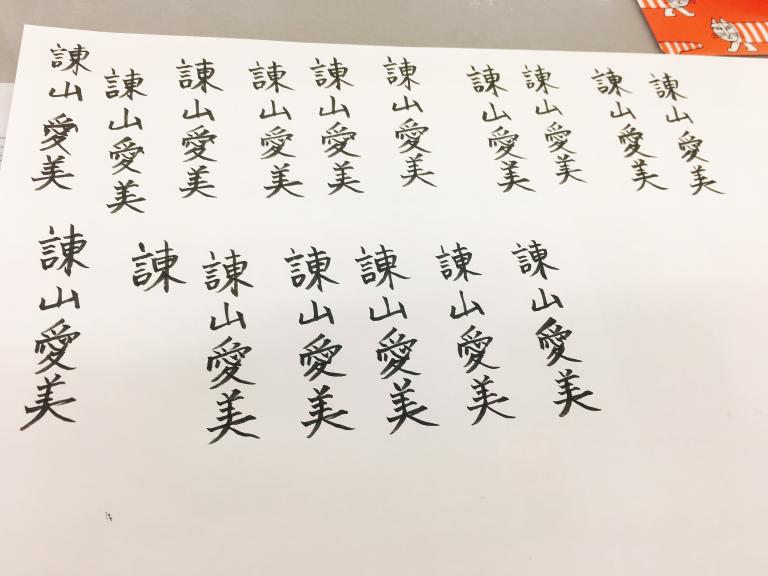 諌山愛美
諌山愛美
諌山愛美
諌山愛美
諌山愛美
諌山愛美
諌山愛美
諌山愛美
諌山愛美
諌山愛美
諌山愛美
諌
諌山愛美
諌山愛美
諌山愛美
諌山愛美
諌山愛美